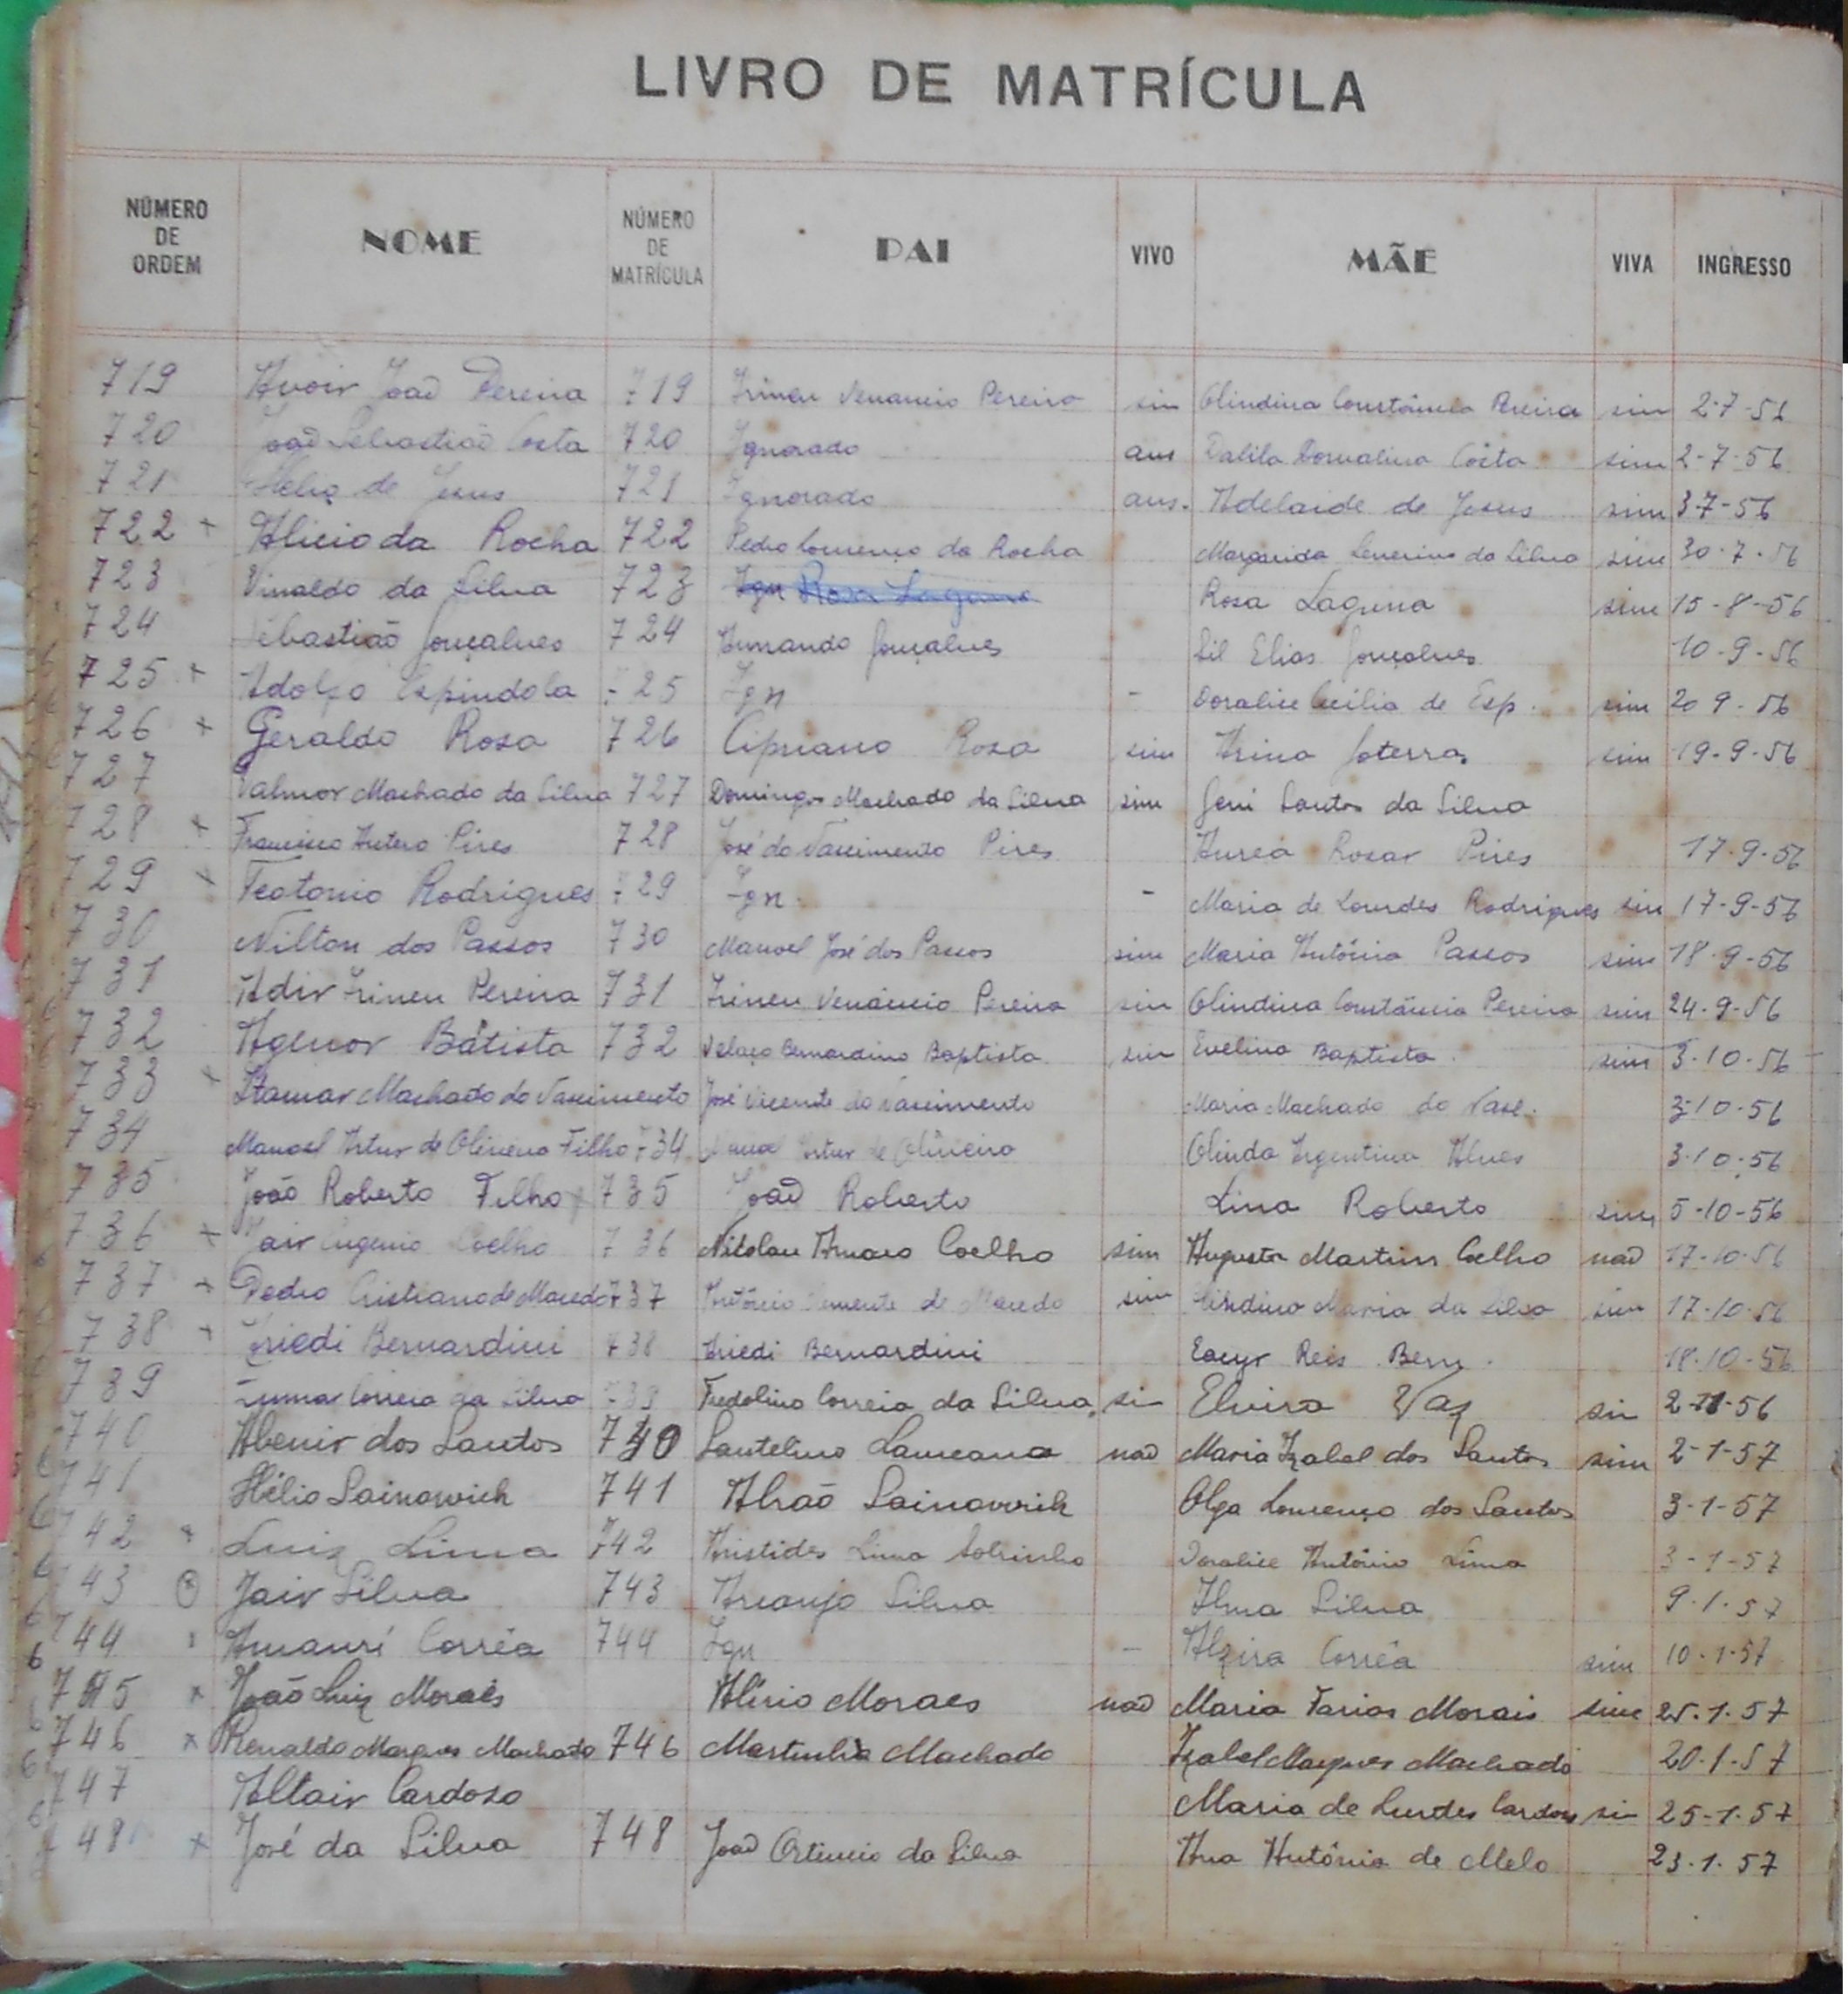 LIVRO DE MATRÍCULA
NÚMERO DE ORDEM NOME NÚMERO DE MATRÍCULA PAI VIVO MÃE VIVA INGRESSO
719 Avoir João Pereira 719 Irineu Venancio Pereira sim Olindina Constância Pereira sim 2-7-56
720 João Sebastião Costa 720 Ignorado aus Dalila Dorvalina Costa sim 2-7-56
721 Helio de Jesus 721 Ignorado aus. Adelaide de Jesus sim 3-7-56
722 + Alicio da Rocha 722 Pedro Lourenço da Rocha Margarida Severino da Silva sim 30-7-56
723 Vinaldo da Silva 723 Ign Rosa Laguna Rosa Laguna sim 15-8-56
724 Sebastião Gonçalves 724 Armando Gonçalves Gil Elias Gonçalves 10-9-56
725 + Adolfo Espindola 725 Ign - Doralice Cecilia de Esp. sim 20 9-56
726 + Geraldo Rosa 726 Cipriano Rosa sim Irina sim 19-9-56
727 Valmor Machado da Silva 727 Domingos Machado da Silva sim Geni Santos da Silva
728 + Francisco Antero Pires 728 José do Nascimento Pires Aurea Rosar Pires 17-9-56
729 + Teotonio Rodrigues 729 Ign. - Maria de Lourdes Rodrigues sim 17-9-56
730 Nilton dos Passos 730 Manoel José dos Passos sim Maria Antônia Passos sim 18-9-56
731 Adir Irineu Pereira 731 Irineu Venâncio Pereira sim Olindina Constância Pereira sim 24-9-56
732 Agenor Batista 732 Bernardino Baptista sim Evelina Baptista sim 3-10-56
733 + Itamar Machado do Nascimento José Vicente do Nascimento Maria Machado do Nasc. 3-10-56
734 Manoel Artur de Oliveira Filho 734 Manoel Artur de Oliveira Olinda Argentina Alves 3-10-56
735 João Roberto Filho 735 João Roberto Lina Roberto sim 5-10-56
736 + Jair Eugenio Coelho 736 Nicolau Amaro Coelho sim Augusta Martins Coelho não 17-10-56
737 + Pedro Cristiano de Macedo 737 Antônio Clemente de Macedo sim Maria da Silva sim 17-10-56
738 + Ariedi Bernardini 738 Ariedi Bernardini Eacyr Reis Bern. 18-10-56
739 Correia da Silva 739 Fredolino Correia da Silva sim Elvira Vaz sim 2-11-56
740 Abenir dos Santos 740 Santelino Laureano não Maria Izabel dos Santos sim 2-1-57
741 Hélio Sainowich 741 Abraão Sainowich Olga Lourenço dos Santos 3-1-57
742 + Luiz Lima 742 Aristides Lima Sobrinho Doralice Antônio Lima 3-1-57
743 Jair Silva 743 Arcanjo Silva Ilma Silva 9-1-57
744 Amauri Corrêa 744 Ign - Alzira Corrêa sim 10-1-57
745 x João Luiz Moraes Alirio Moraes não Maria Farias Morais sim 25-1-57
746 x Renaldo Marques Machado 746 Martinha Machado Izabel Marques Machado 20-1-57
747 Altair Cardoso Maria de Lurdes Cardoso sim 25-1-57
748 x José da Silva 748 João da Silva Ana Antônia de Melo 23-1-57